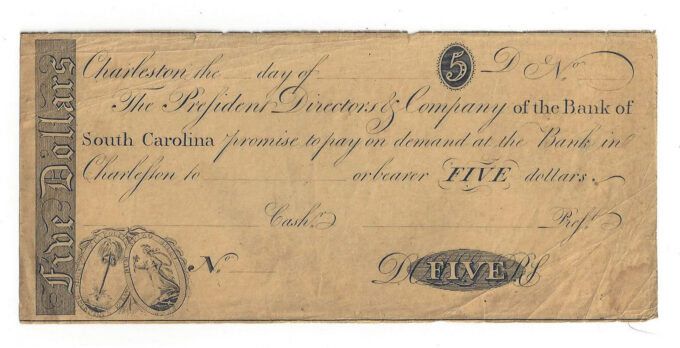 Five Dollars
Charleston, the day of 5 D No.
The Preſident Directors & Company of the Bank of
South Carolina promise to pay on demand at the Bank in
Charleſton to or bearer FIVE dollars.
Cashr. Preſt.
No. DOLLARS
FIVE